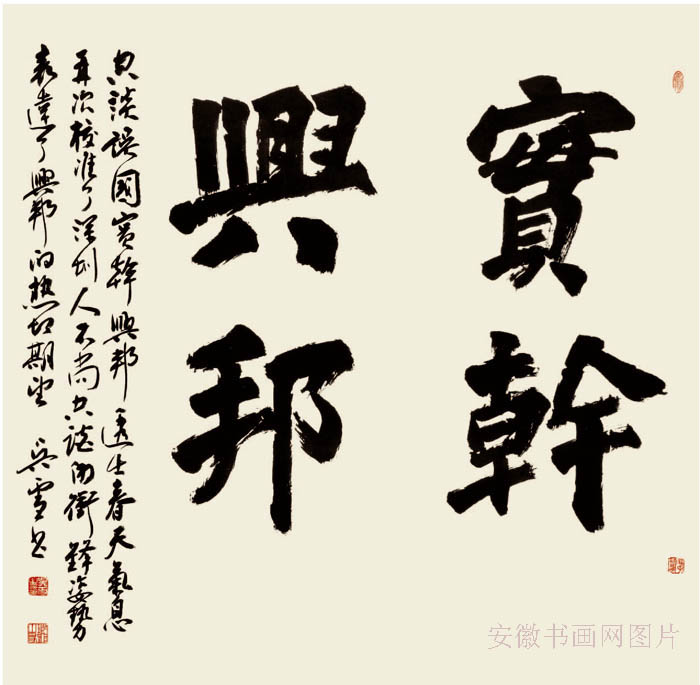 實幹
興邦
空談誤國實幹興邦 透出春天氣息
再次校准了深圳人不尚空談的衝鋒姿勢
表達了興邦的热切期望 吴雪书
安徽书画网图片